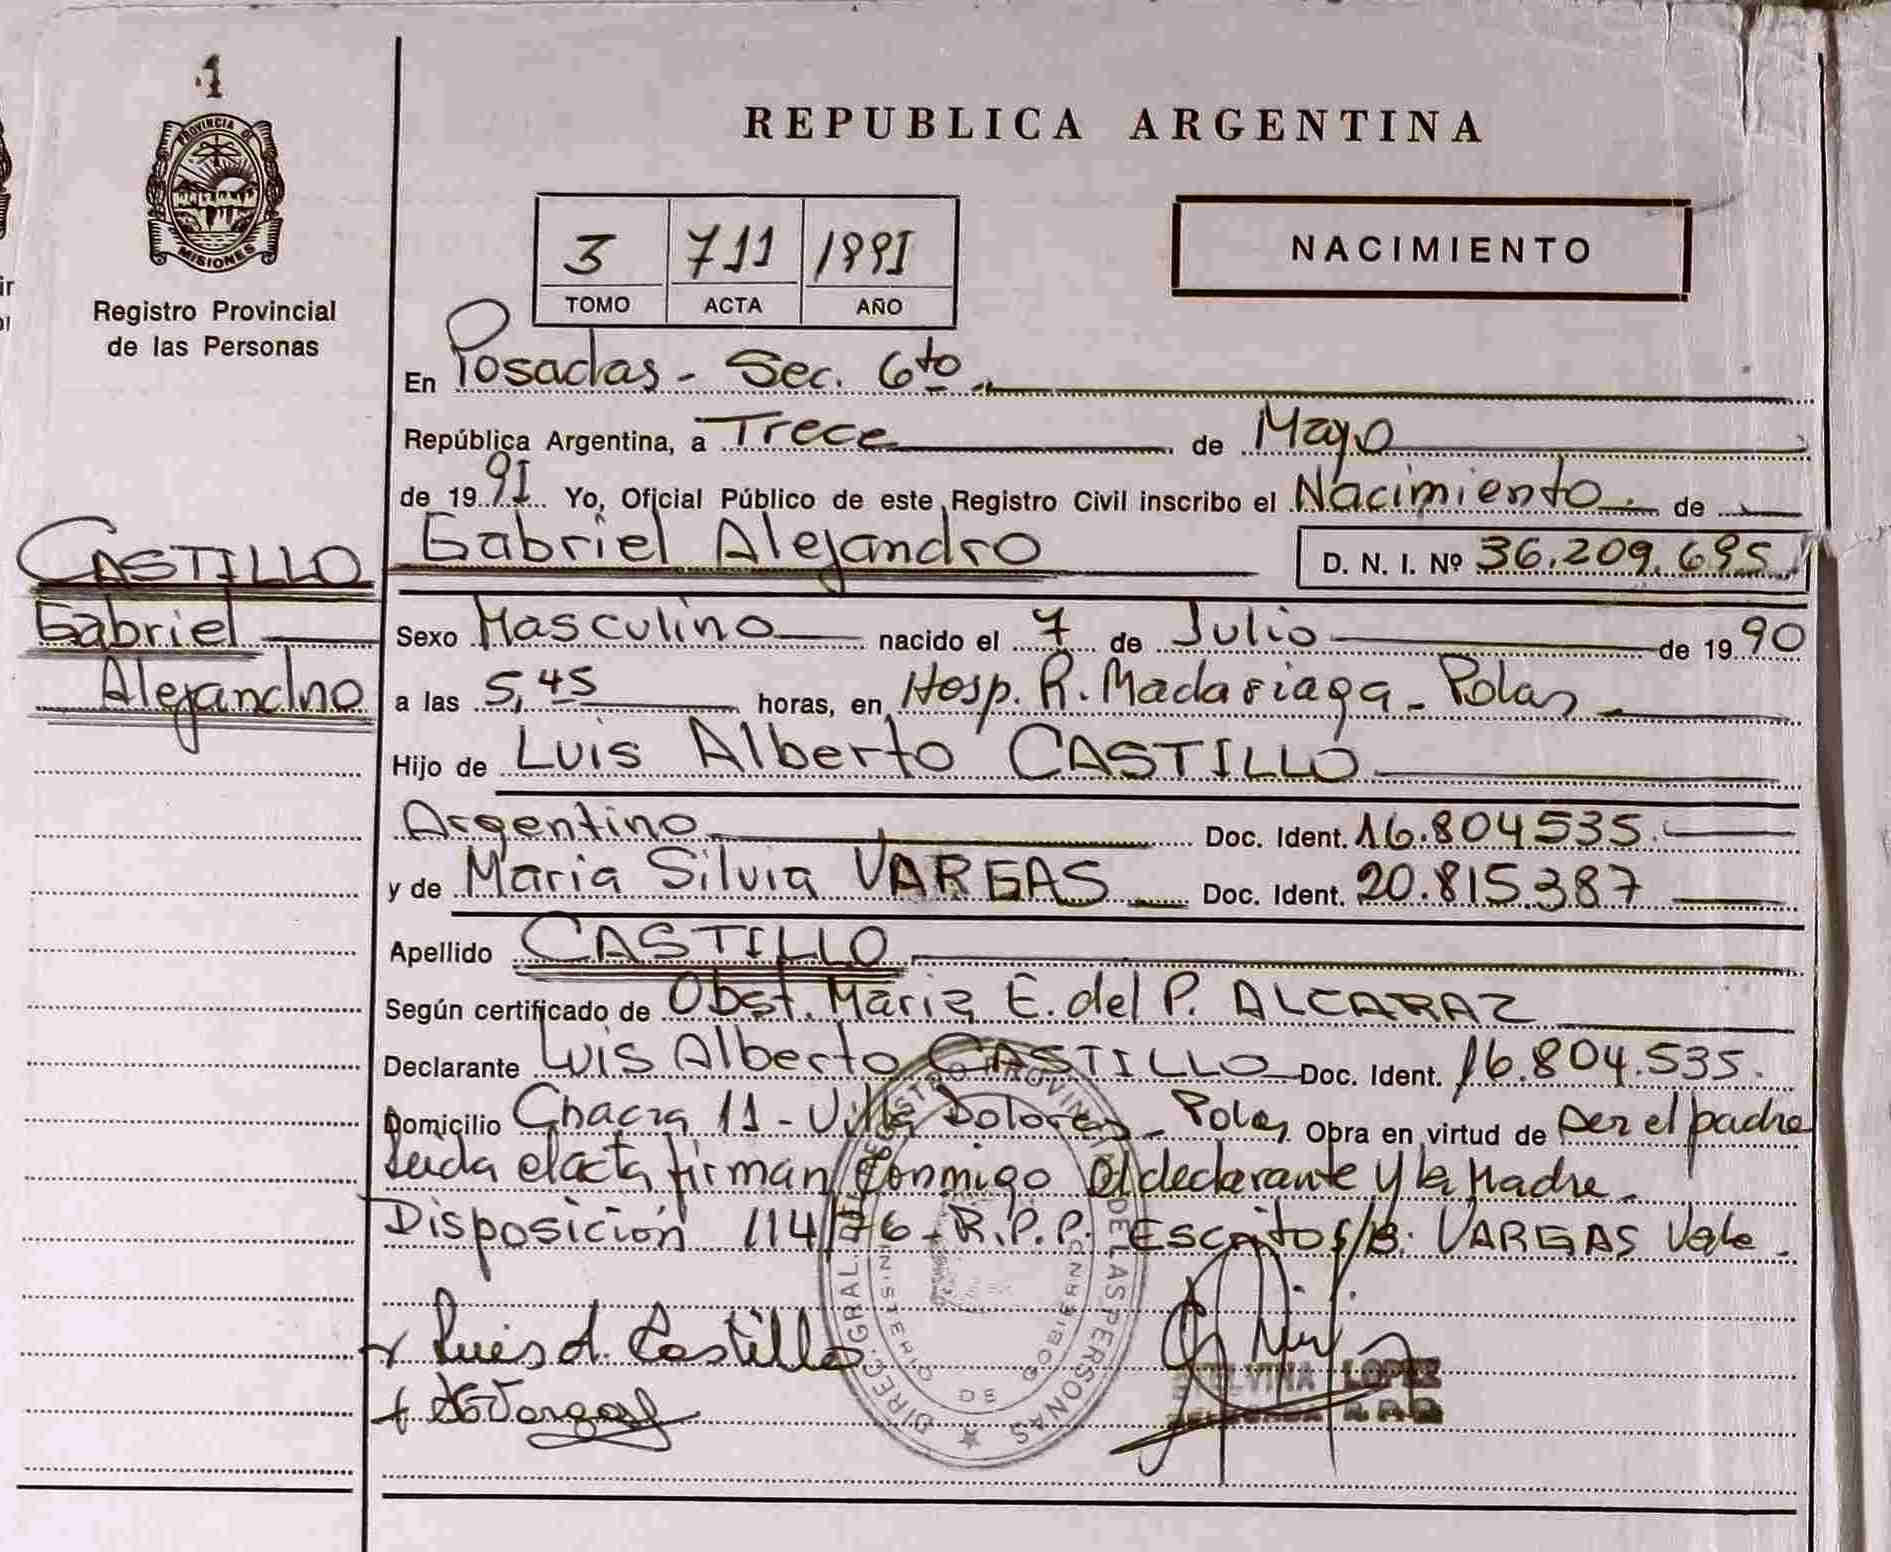 1
PROVINCIA DE
MISIONES
Registro Provincial
de las Personas
CASTILLO
Gabriel
Alejandro
REPUBLICA ARGENTINA
3 711 1991
TOMO ACTA AÑO
NACIMIENTO
En Posadas - Sec. 6to
República Argentina, a Trece de Mayo
de 1991 Yo, Oficial Público de este Registro Civil inscribo el Nacimiento de
Gabriel Alejandro D. N. I. Nº 36.209.695
Sexo Masculino nacido el 7 de Julio de 1990
a las 5,45 horas, en Hosp. R. Madariaga - Pdas
Hijo de Luis Alberto CASTILLO
Argentino Doc. Ident. 16.804535.
y de Maria Silvia VARGAS Doc. Ident. 20.815.387
Apellido CASTILLO
Según certificado de Obst. Maria E. del P. ALCARAZ
Declarante Luis Alberto CASTILLO Doc. Ident. 16.804.535.
Domicilio Chacra 11 - Villa Dolores - Pdas Obra en virtud de ser el padre
Leida el acta firman conmigo el declarante y la Madre.
Disposición 114/76 - R.P.P. Escrito s/b. VARGAS Vale.
Luis A. Castillo
Vargas
LOPEZ
DIREC. GRAL. REGISTRO PROVINCIAL DE LAS PERSONAS
MINISTERIO DE GOBIERNO